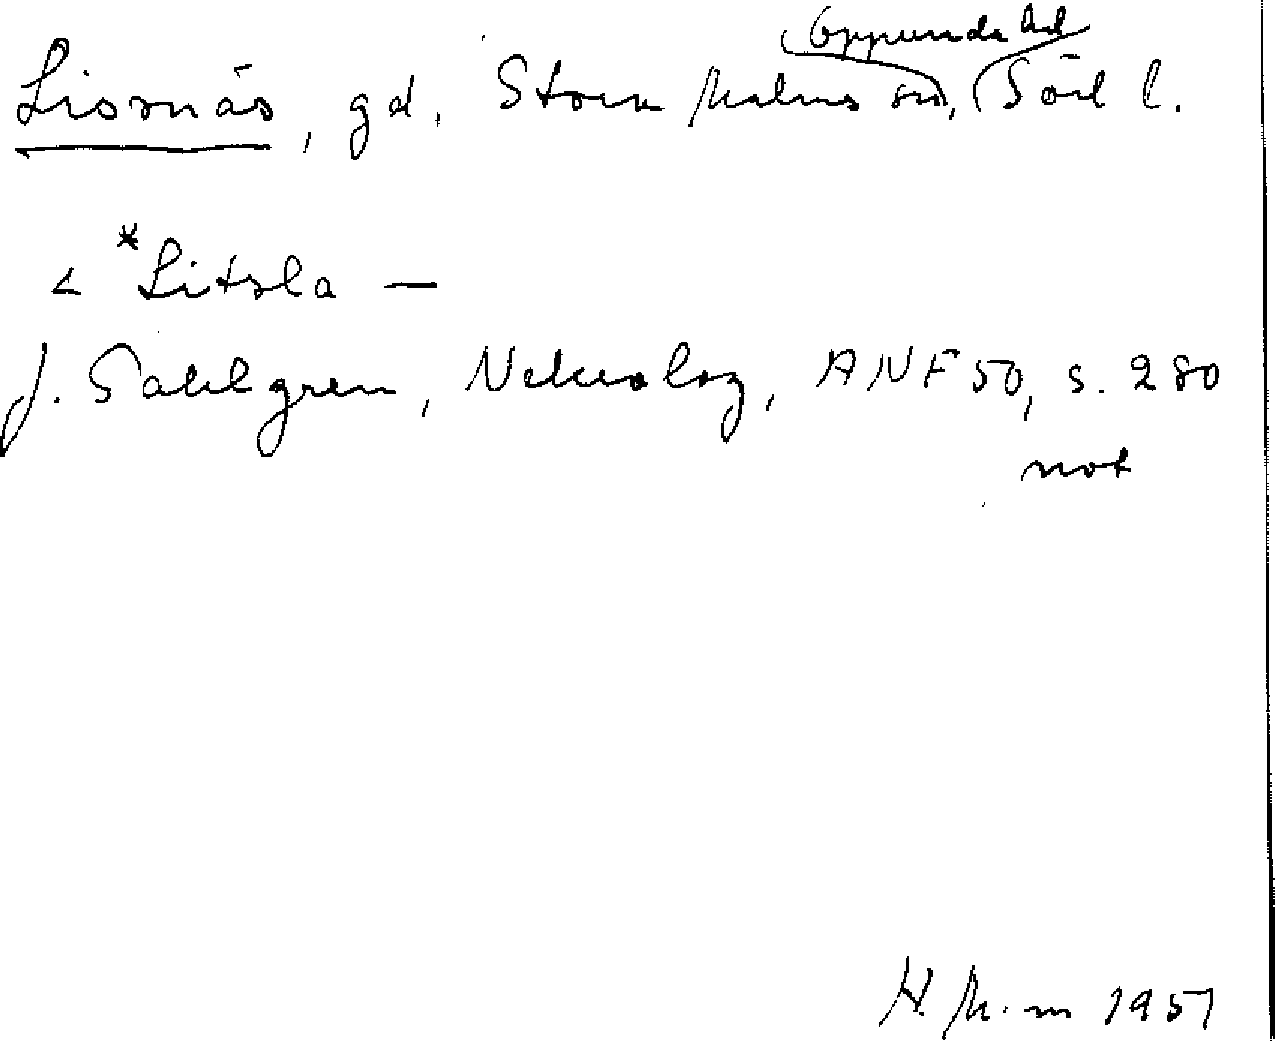 Oppunda hd
Lissnäs, gd. Stora Malms sn, Söd l.
< *Litsla —
J. Sahlgren, Nekrolog, ANF 50, s. 280
not
H. M.-m 1951